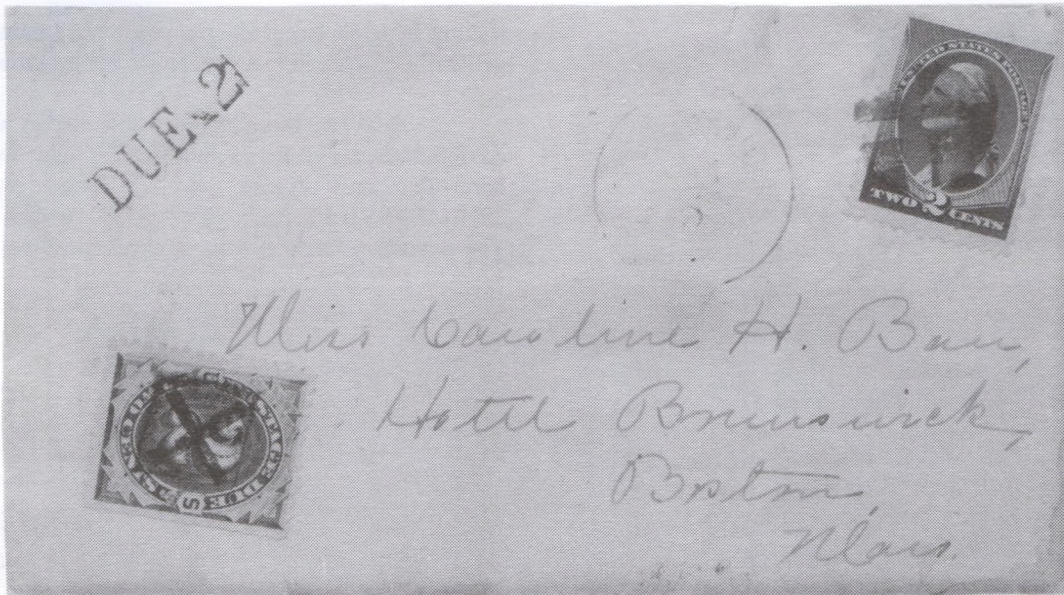 DUE 2
UNITED STATES POSTAGE
TWO 2 CENTS
Miss Caroline H.
Hotel Brunswick,
Boston,
Mass.
POSTAGE DUE